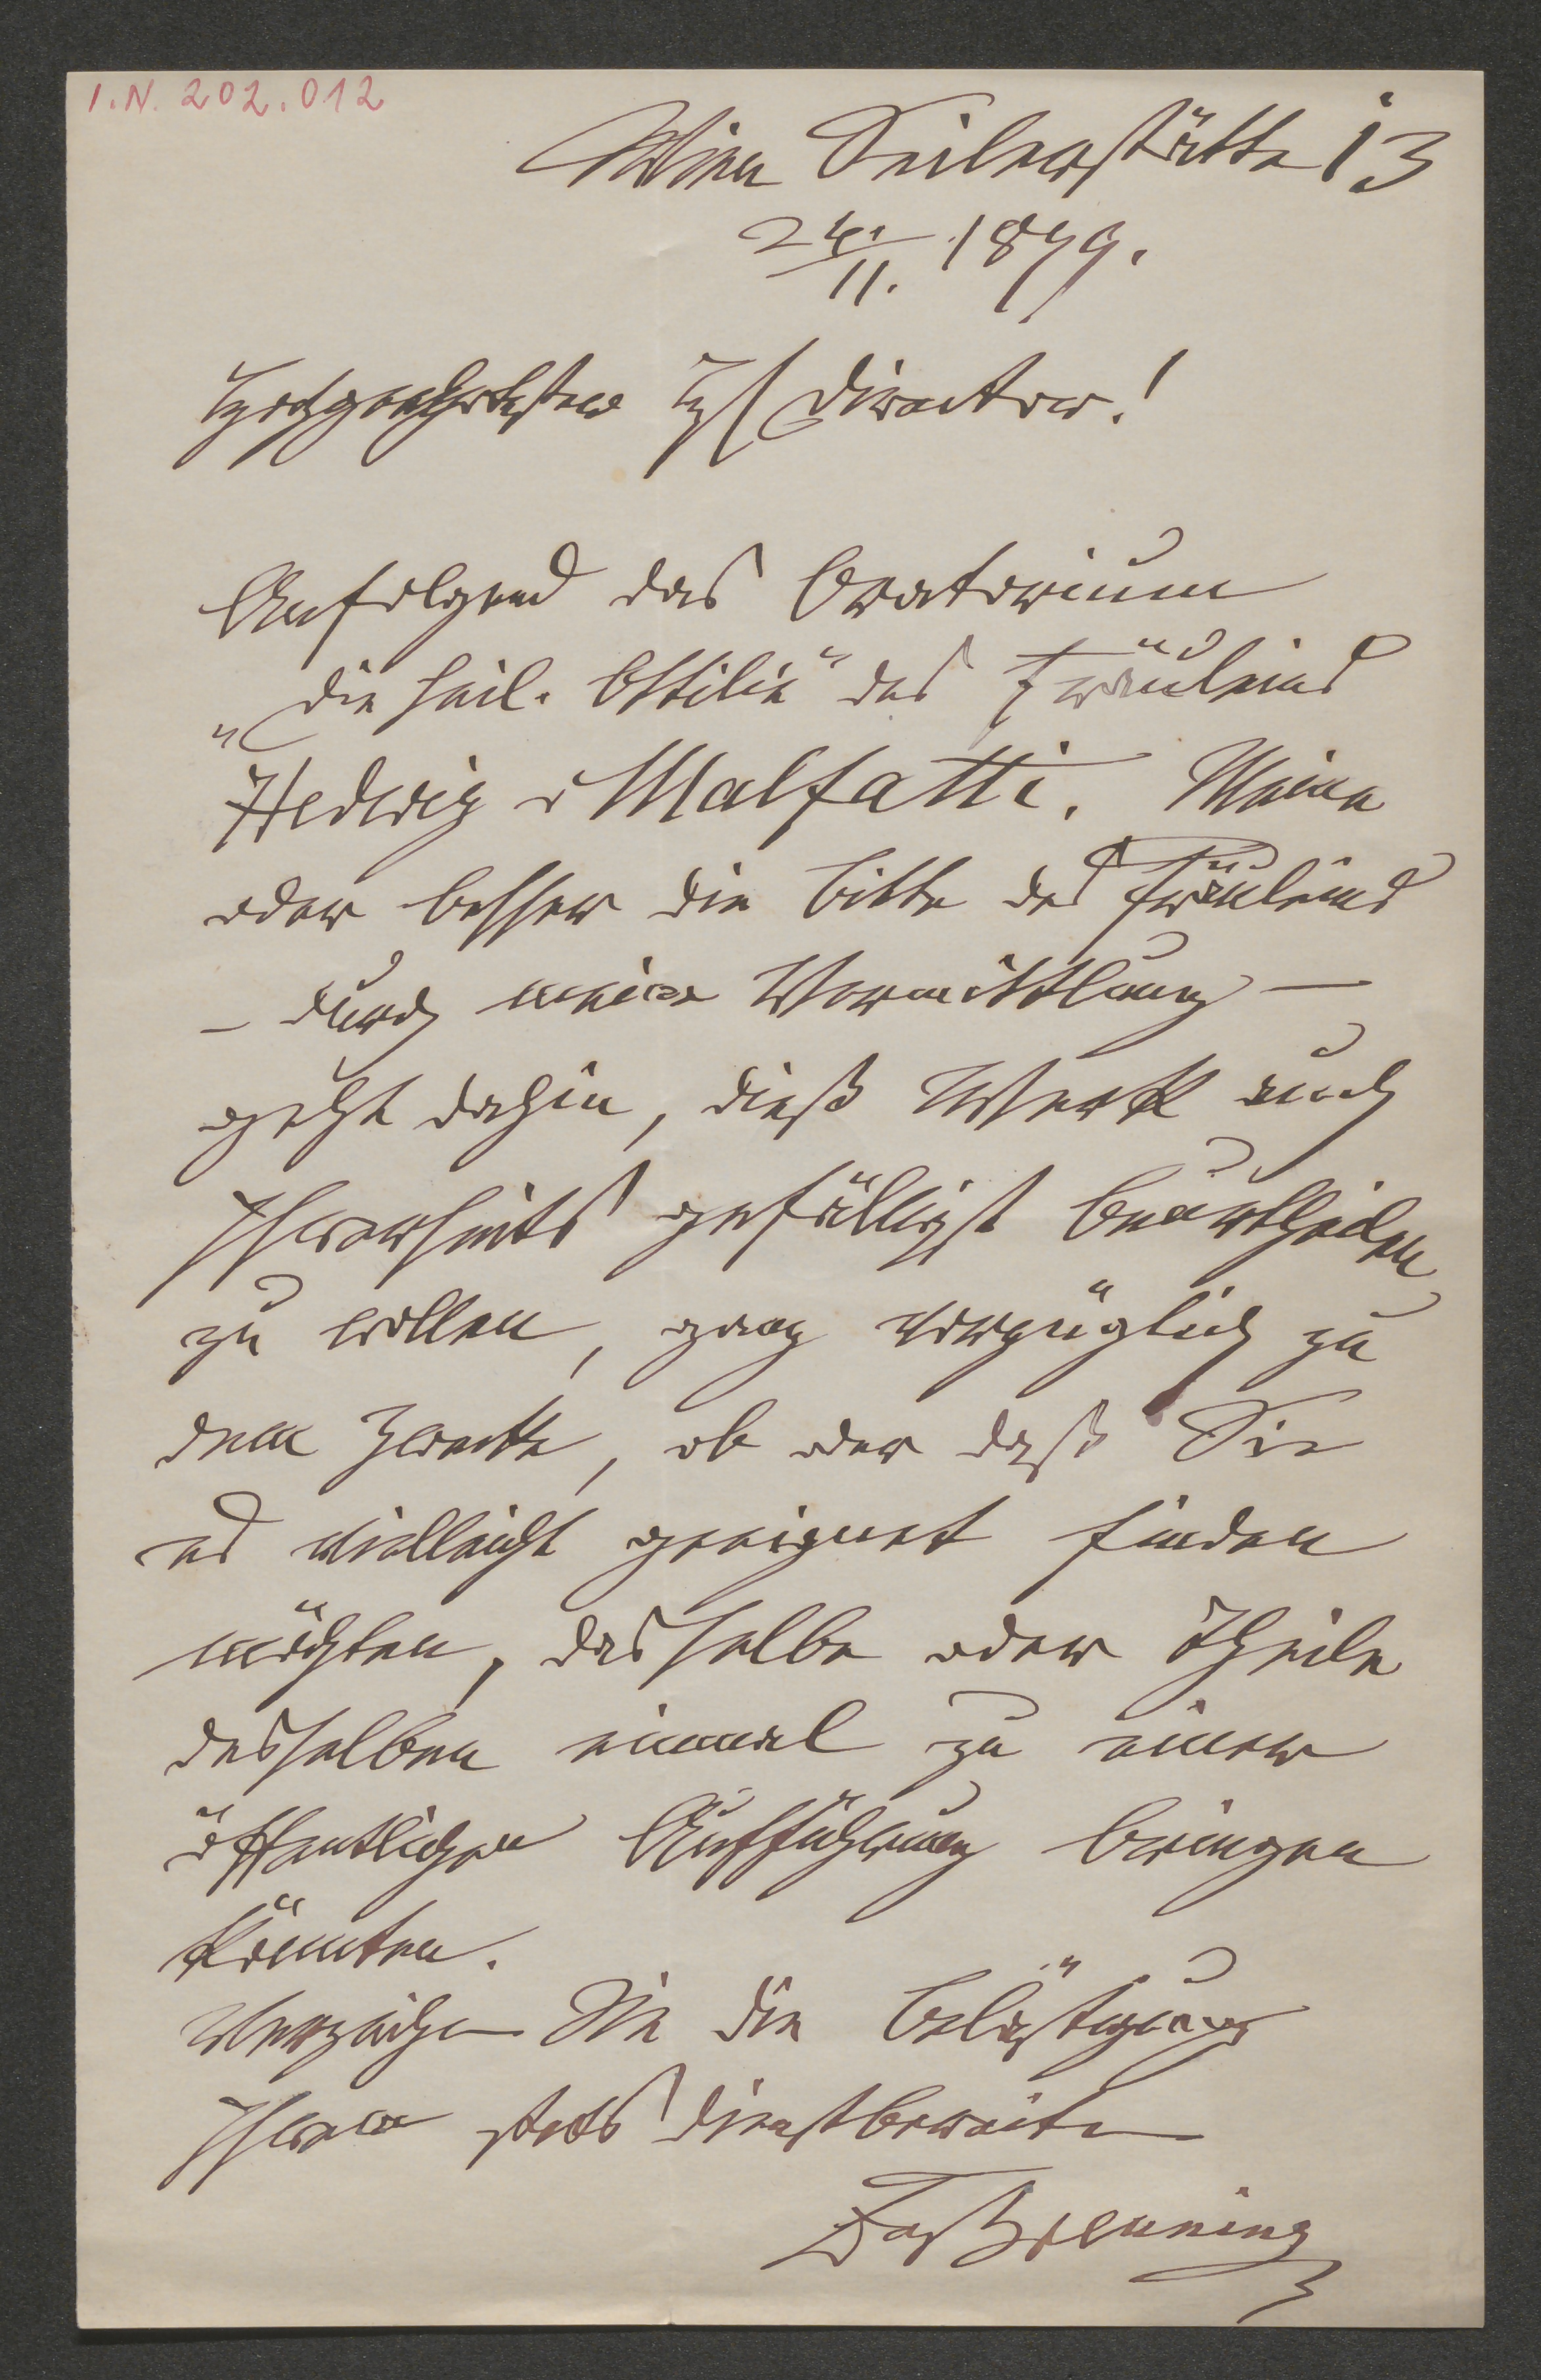 I.N. 202.012
Wien Seilerstätte 13
24./11. 1879.
Hochgeehrtester H Director!
Anfolgend das Oratorium
„Die heil. Ottilie“ des Fräuleins
Hedwig v Malfatti. Meine
oder besser die Bitte des Fräuleins
– durch meine Vermittlung –
geht dahin, dieß Werk auch
Ihrerseits gefälligst beurtheilen
zu wollen, ganz vorzüglich zu
dem Zwecke, ob oder daß Sie
es vielleicht geeignet finden
möchten, dasselbe oder Theile
desselben einmal zu einer
öffentlichen Aufführung bringen
könnten.
Verzeihen Sie die Belästigung
Ihrem stets dienstbereiten
Breuning